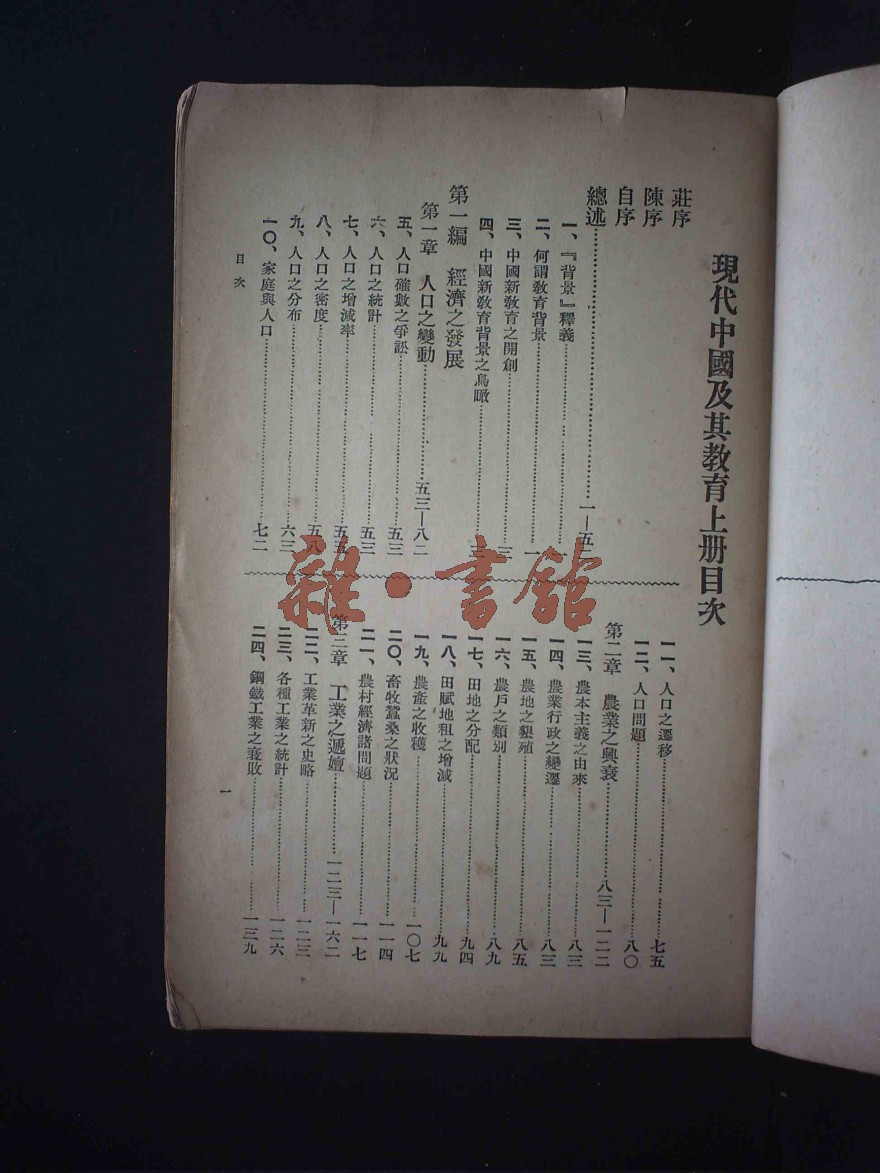 現代中國及其教育上册目次
莊序
陳序
自序
總述…一—五
一、『背景』釋義…一
二、何謂教育背景…一
三、中國新教育之開創…三
四、中國新教育背景之鳥瞰…三
第一編 經濟之發展
第一章 人口之變動…五三—八二
五、人口確數之爭訟…五三
六、人口之統計…五三
七、人口之增減率…五五
八、人口之密度…五八
九、人口之分布…六三
一〇、家庭與人口…七二
一一、人口之遷移…七五
一二、人口問題…八〇
第二章 農業之興衰…八三—一二二
一三、農本主義之由來…八三
一四、農業行政之變遷…八三
一五、農地之墾殖…八五
一六、農戶之類別…八九
一七、田地之分配…九四
一八、田賦地租之增減…九九
一九、農產之收穫…一〇七
二〇、畜牧蠶桑之狀況…一一四
二一、農村經濟諸問題…一一七
第三章 工業之遞嬗…一二三—一六二
二二、工業革新之史略…一二三
二三、各種工業之統計…一二六
二四、鋼鐵工業之衰敗…一三九
目次
一
雜·書館